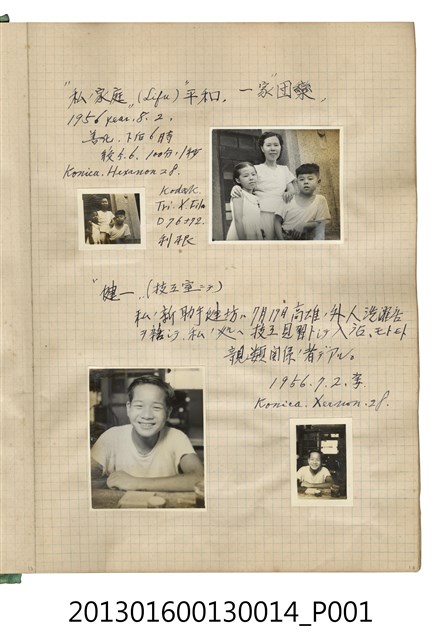 "私ノ家庭" (Life) 平和. 一家団欒.
1956 year. 8. 2,
善化. 下午6時
絞5.6. 100分ノ1秒
Konica. Hexanon 2.8.
Kodak.
Tri. X. Film
D76+72.
利根
"健一" (技工室ニテ)
私ノ新助手 健坊ハ 7月17日高雄ノ外人洗濯店
ヲ辞シ 私ノ処ヘ 技工見習トシテ入店、モトモト
親類関係ノ者デアル。
1956. 7. 2. 李
Konica. Xexnon. 2.8.
201301600130014_P001